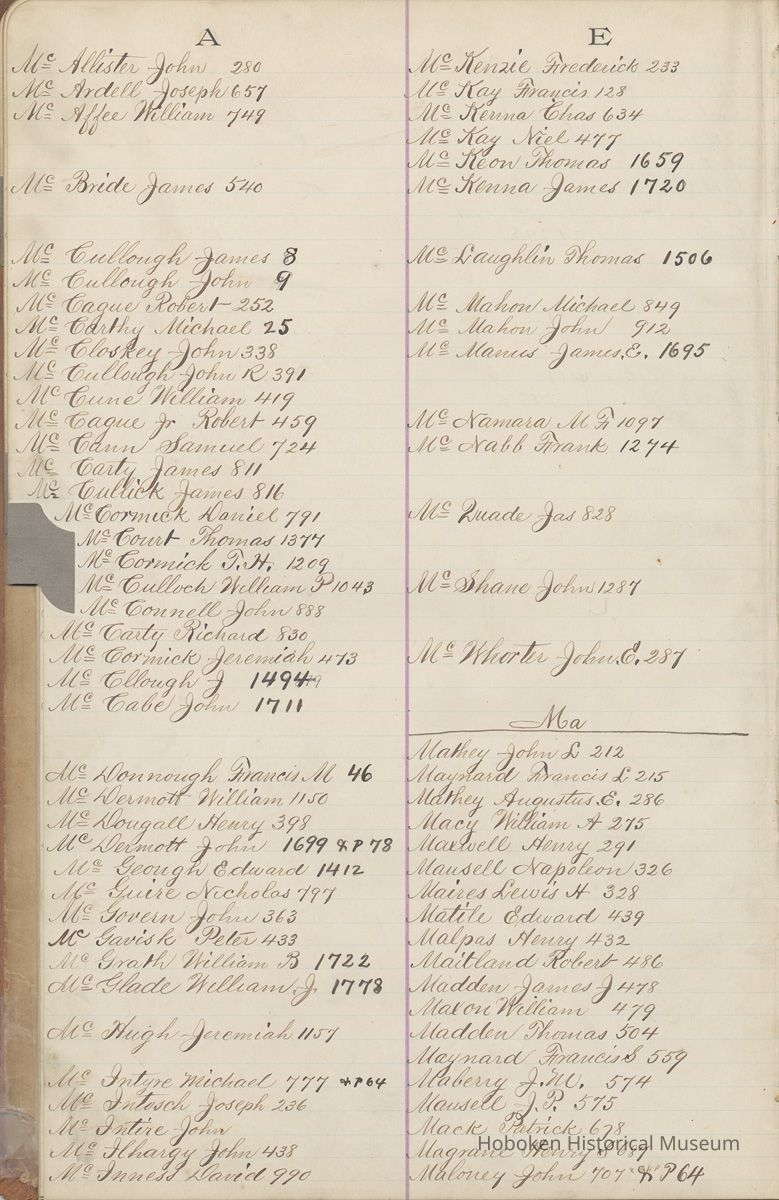 A
Mc Allister John 280
Mc Ardell Joseph 657
Mc Affee William 749
Mc Bride James 540
Mc Cullough James 8
Mc Cullough John 9
Mc Cague Robert 252
Mc Carthy Michael 25
Mc Closkey John 338
Mc Cullough John R 391
Mc Cune William 419
Mc Cague Jr Robert 459
Mc Cann Samuel 724
Mc Carty James 811
Mc Cullick James 816
Mc Cormick Daniel 791
Mc Court Thomas 1377
Mc Cormick T. H. 1209
Mc Culloch William P 1043
Mc Connell John 888
Mc Carty Richard 830
Mc Cormick Jeremiah 473
Mc Cllough J 1494
Mc Cabe John 1711
Mc Donnough Francis M 46
Mc Dermott William 1150
Mc Dougall Henry 398
Mc Dermott John 1699 & P 78
Mc Geough Edward 1412
Mc Guire Nicholas 797
Mc Govern John 363
Mc Gavisk Peter 433
Mc Grath William B 1722
Mc Glade William J. 1778
Mc Hugh Jeremiah 1157
Mc Intyre Michael 777 & P 64
Mc Intosch Joseph 236
Mc Intire John
Mc Ilhargy John 438
Mc Inness David 990
E
Mc Kenzie Frederick 233
Mc Kay Francis 128
Mc Kenna Chas 634
Mc Kay Niel 477
Mc Keon Thomas 1659
Mc Kenna James 1720
Mc Laughlin Thomas 1506
Mc Mahon Michael 849
Mc Mahon John 912
Mc Manus James. E. 1695
Mc Namara M F 1097
Mc Nabb Frank 1274
Mc Quade Jas 828
Mc Shane John 1287
Mc Whorter John. E. 287
Ma
Mathey John L 212
Maynard Francis L 215
Mathey Augustus. E. 286
Macy William A 275
Maxwell Henry 291
Mausell Napoleon 326
Maires Lewis H 328
Matile Edward 439
Malpas Henry 432
Maitland Robert 486
Madden James J 478
Maxon William 479
Madden Thomas 504
Maynard Francis S 559
Maberry J. M. 574
Mausell J. P. 575
Mack Patrick 678
Magrane Henry S 689
Maloney John 707 & P 64
Hoboken Historical Museum